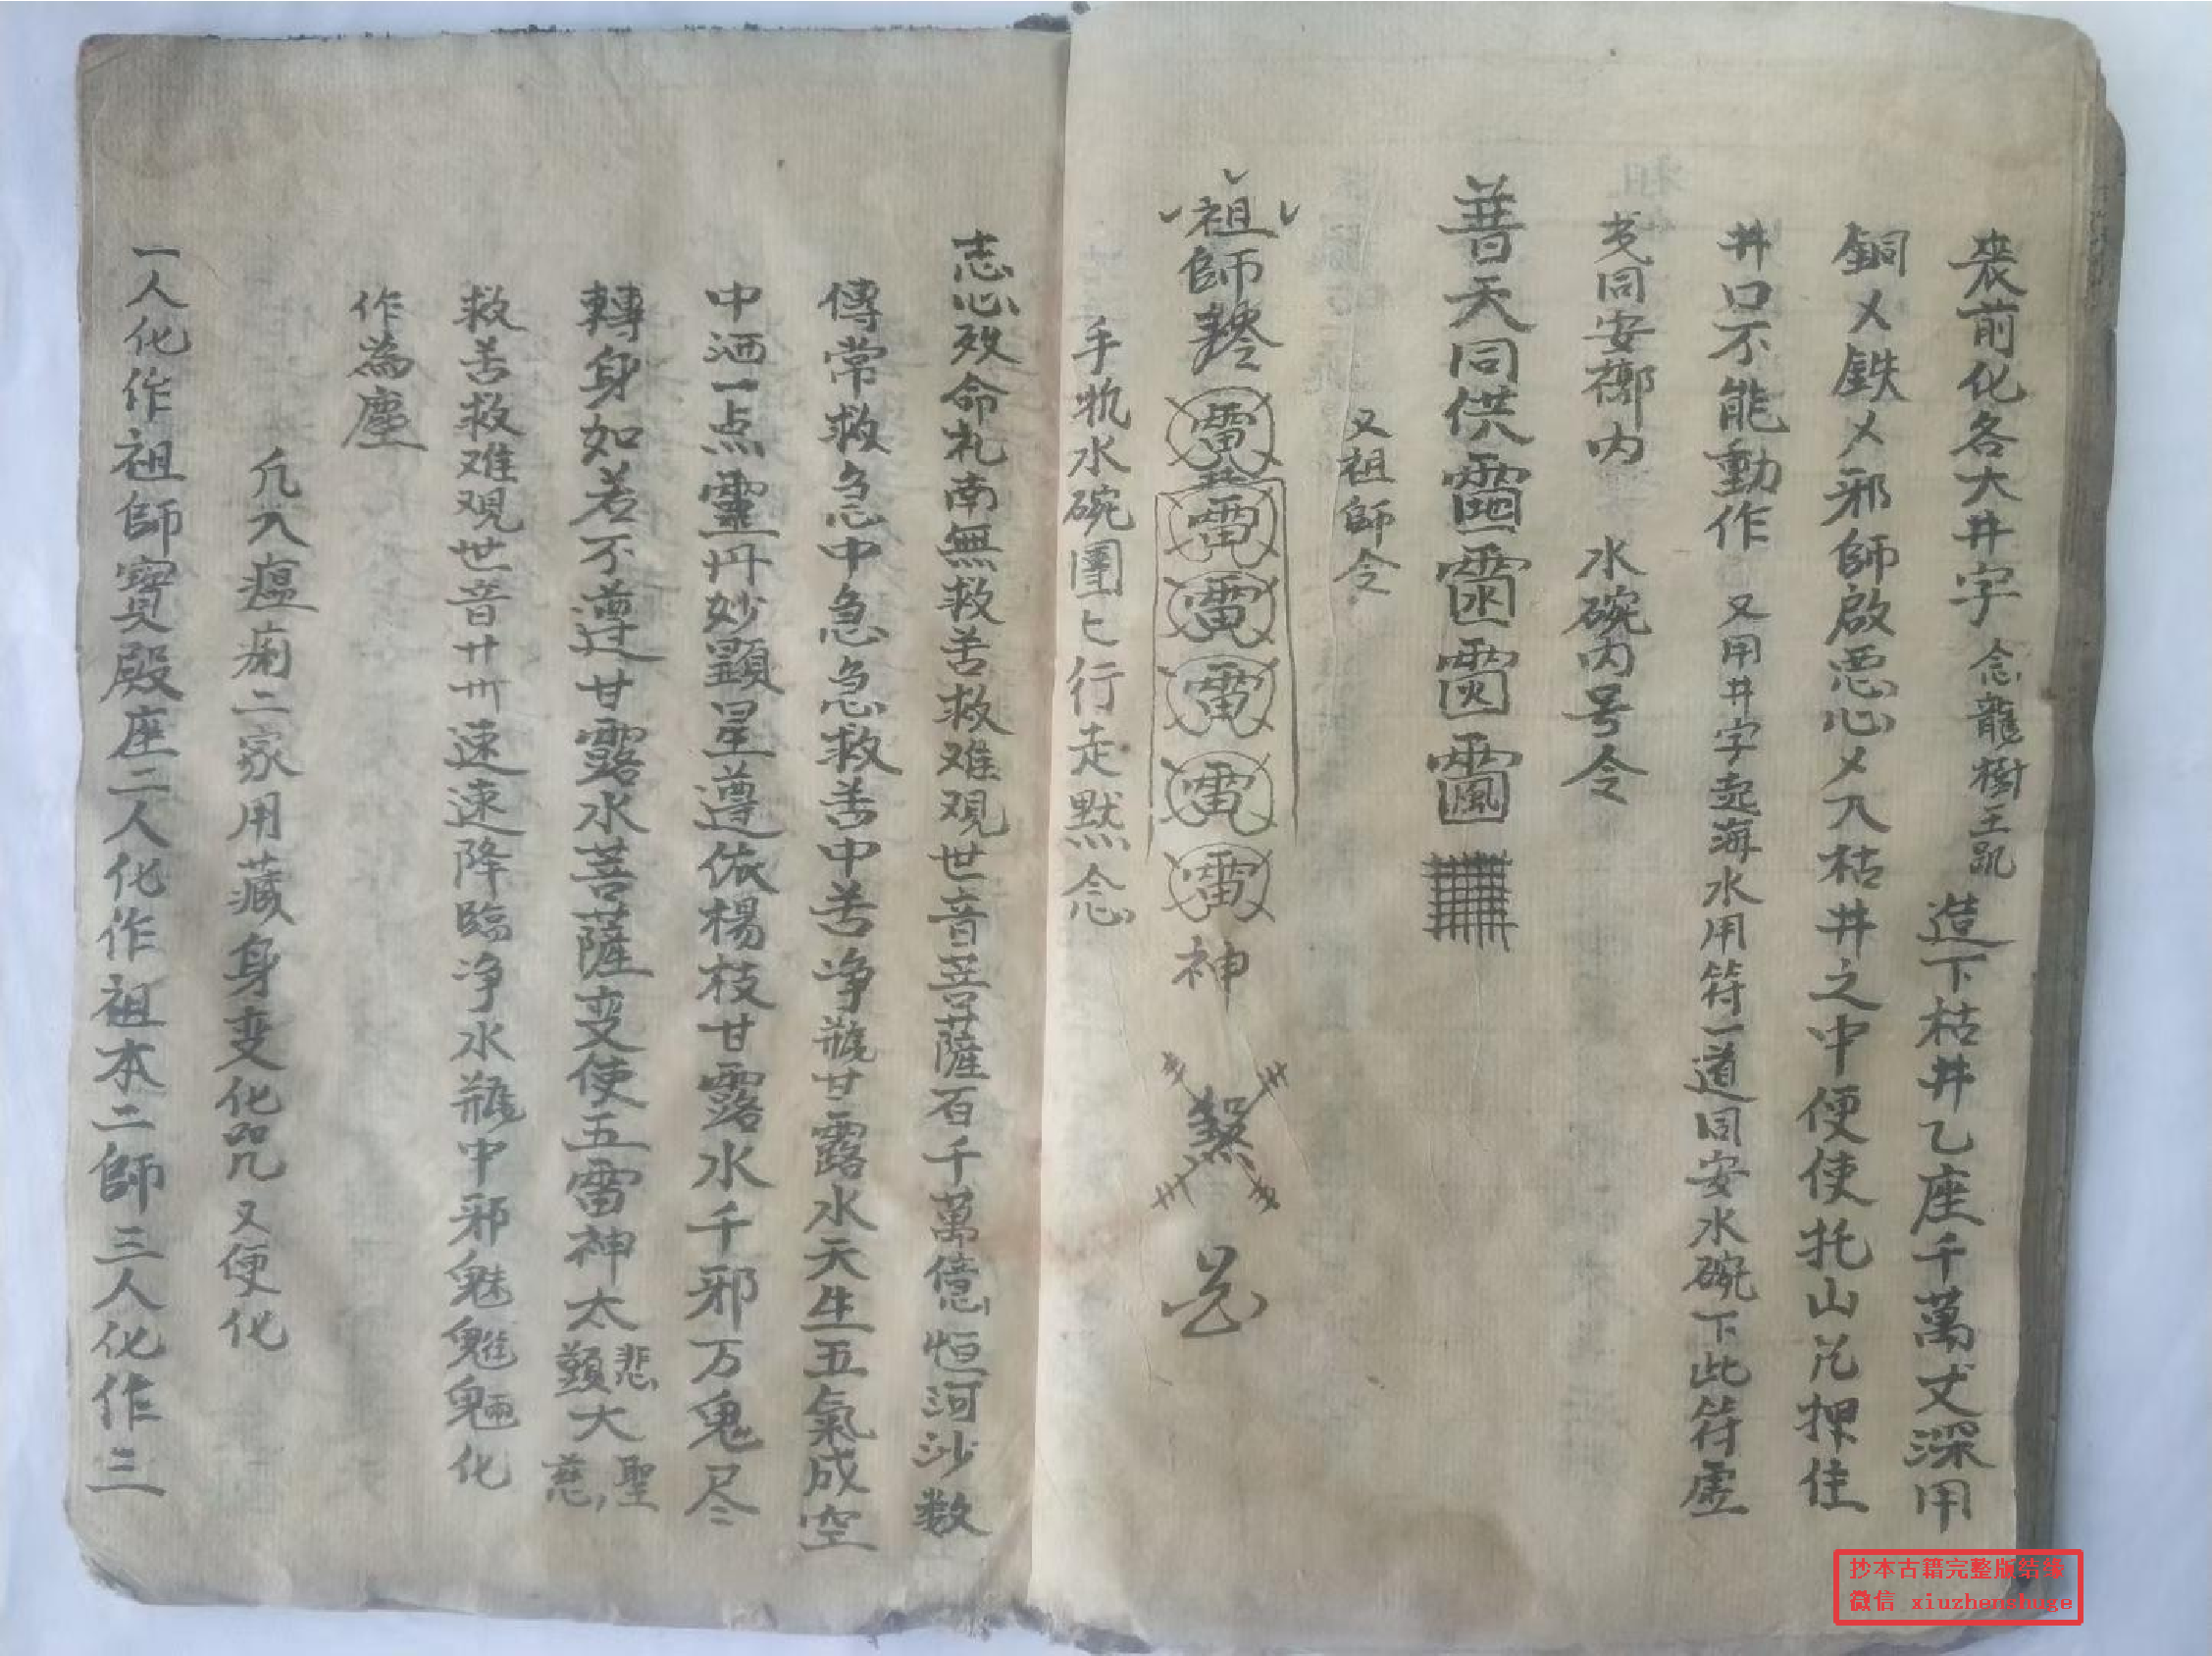 裝前化各大井字 念龍樹王 造下枯井乙座千萬丈深用
銅乂鉄乂邪師啟惡心乂入枯井之中便使托山 押住
井口不能動作 又用井字起海水用符一道同安水碗下此符虛
同安 内 水碗内号令
普天同供
又祖師令
祖師 雷雷雷雷雷雷神 煞
手执水碗團匕行走默念
志心皈命礼南無救苦救难观世音菩薩百千萬億恒河沙数
傳常救急中急急救苦中苦净瓶甘露水天生五氣成空
中洒一点靈丹妙顕星遵依楊枝甘露水千邪万鬼尽
轉身如若不遵甘露水菩薩变使五雷神太悲願大聖慈
救苦救难观世音廾卅速速降臨净水瓶中邪魅魁魎化
作為塵
凡入瘟痢二家用藏身变化咒又便化
一人化作祖師寶殿座二人化作祖本二師三人化作三
抄本古籍完整版结缘
微信 xiuzhenshuge